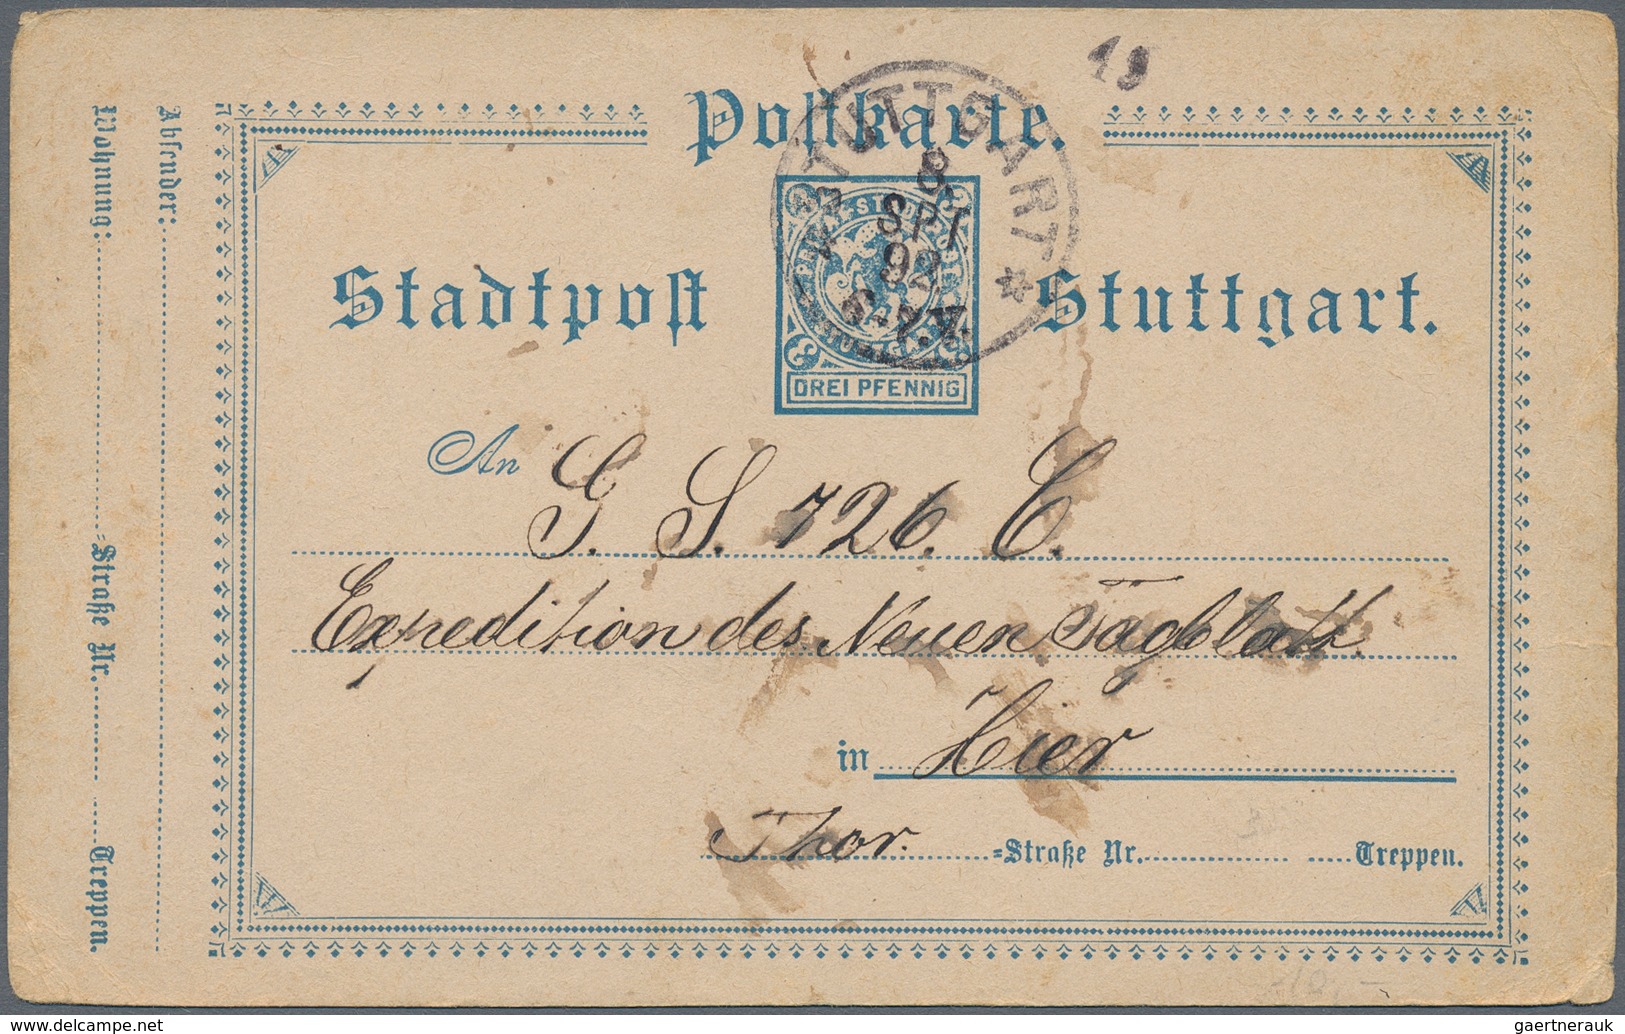 19
Postkarte.
STUTTGART
8.
SPT.
92
6-7.V.
Stadtpost Stuttgart.
DREI PFENNIG
An G. S. 726. C.
Expedition des Neuen Tagblatt
in Hier
Thor. =Straße Nr. Treppen.
Absender:
Wohnung: =Straße Nr. Treppen.
www.delcampe.net
gaertnerauk